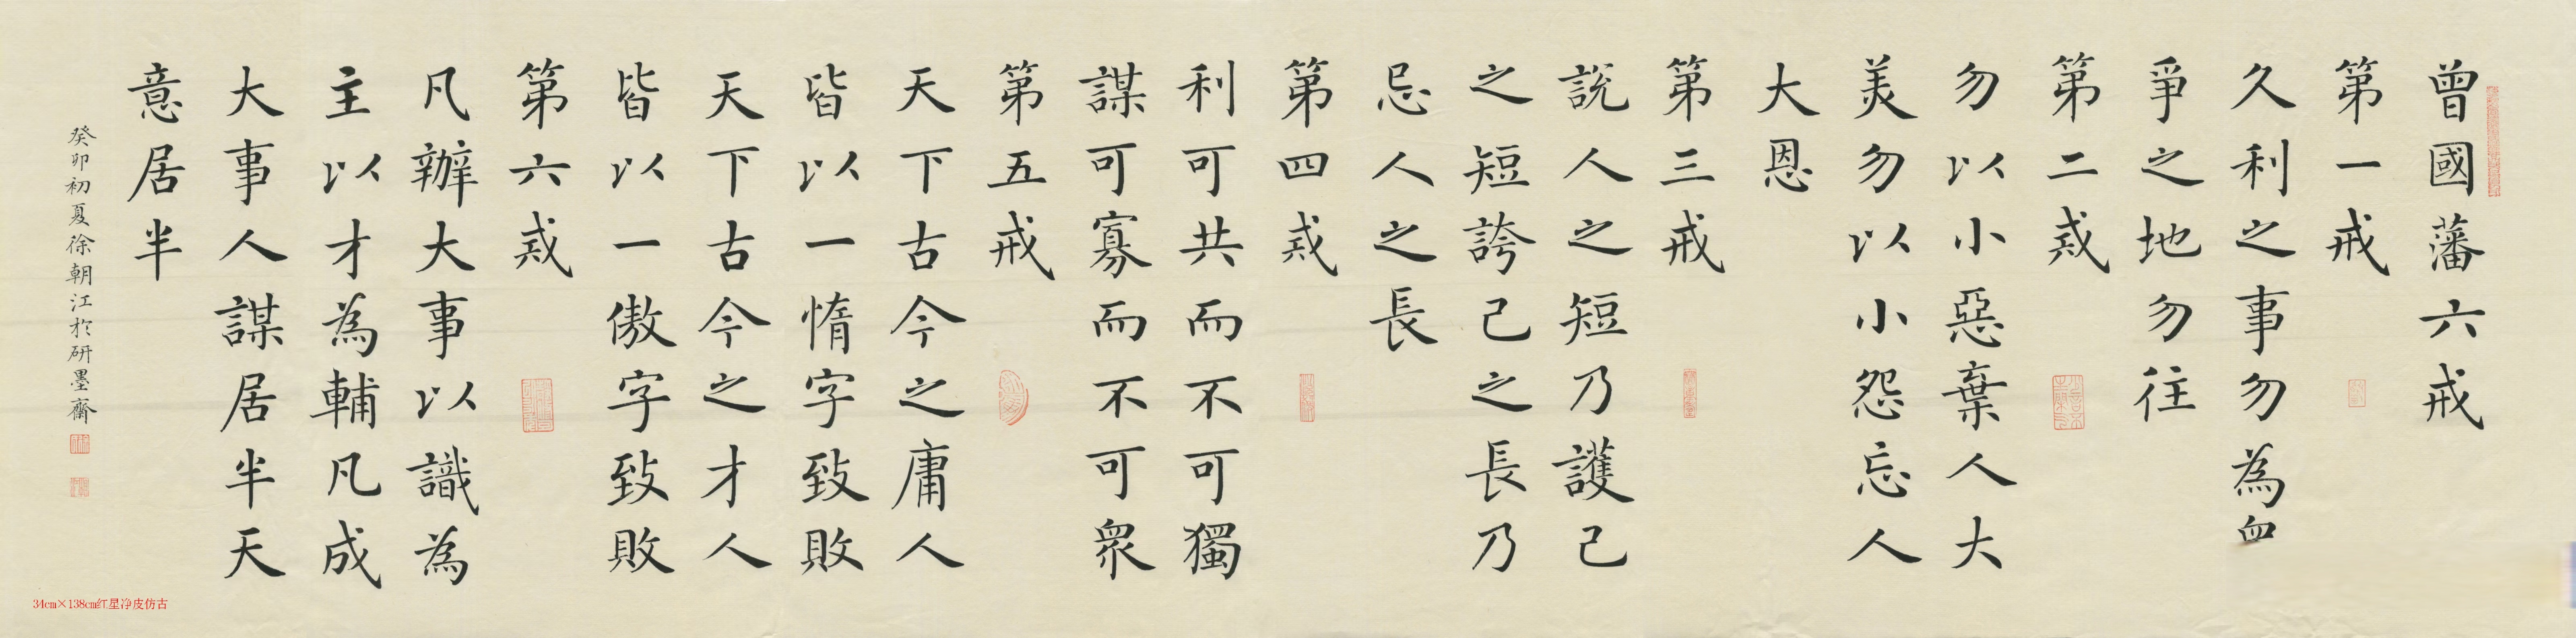 曾國藩六戒
第一戒
久利之事勿為血
爭之地勿往
第二戒
勿以小惡棄人大
美勿以小怨忘人
大恩
第三戒
說人之短乃護己
之短誇己之長乃
忌人之長
第四戒
利可共而不可獨
謀可寡而不可衆
第五戒
天下古今之庸人
皆以一惰字致敗
天下古今之才人
皆以一傲字致敗
第六戒
凡辦大事以識為
主以才為輔凡成
大事人謀居半天
意居半
癸卯初夏徐朝江於研墨齋
34cm×138cm红星净皮仿古